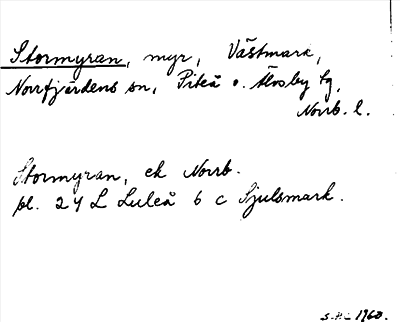 Stormyran, myr, Västmark,
Norrfjärdens sn, Piteå o. Älvsby tg,
Norrb. l.
Stormyran, ek Norrb.
pl. 24 L Luleå 6 c Sjulsmark.
1960.